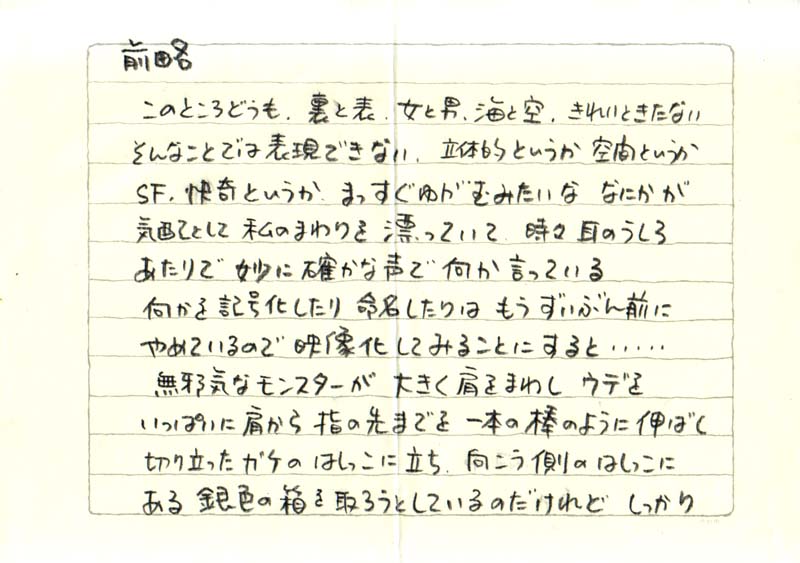 前略
このところどうも、裏と表、女と男、海と空、きれいときたない
そんなことでは表現できない、立体的というか空間というか
SF、快奇というか、まっすぐゆがむみたいな なにかが
気配として 私のまわりを 漂っていて、時々 耳のうしろ
あたりで 妙に確かな声で 何か 言っている
何かを記号化したり 命名したりは もう ずいぶん前に
やめているので 映像化してみることに すると・・・・・
無邪気なモンスターが 大きく肩をまわし ウデを
いっぱいに 肩から 指の先までを 一本の棒のように 伸ばし
切り立ったガケの はしっこに立ち、向こう側の はしっこに
ある 銀色の箱を取ろうとしているのだけれど しっかり